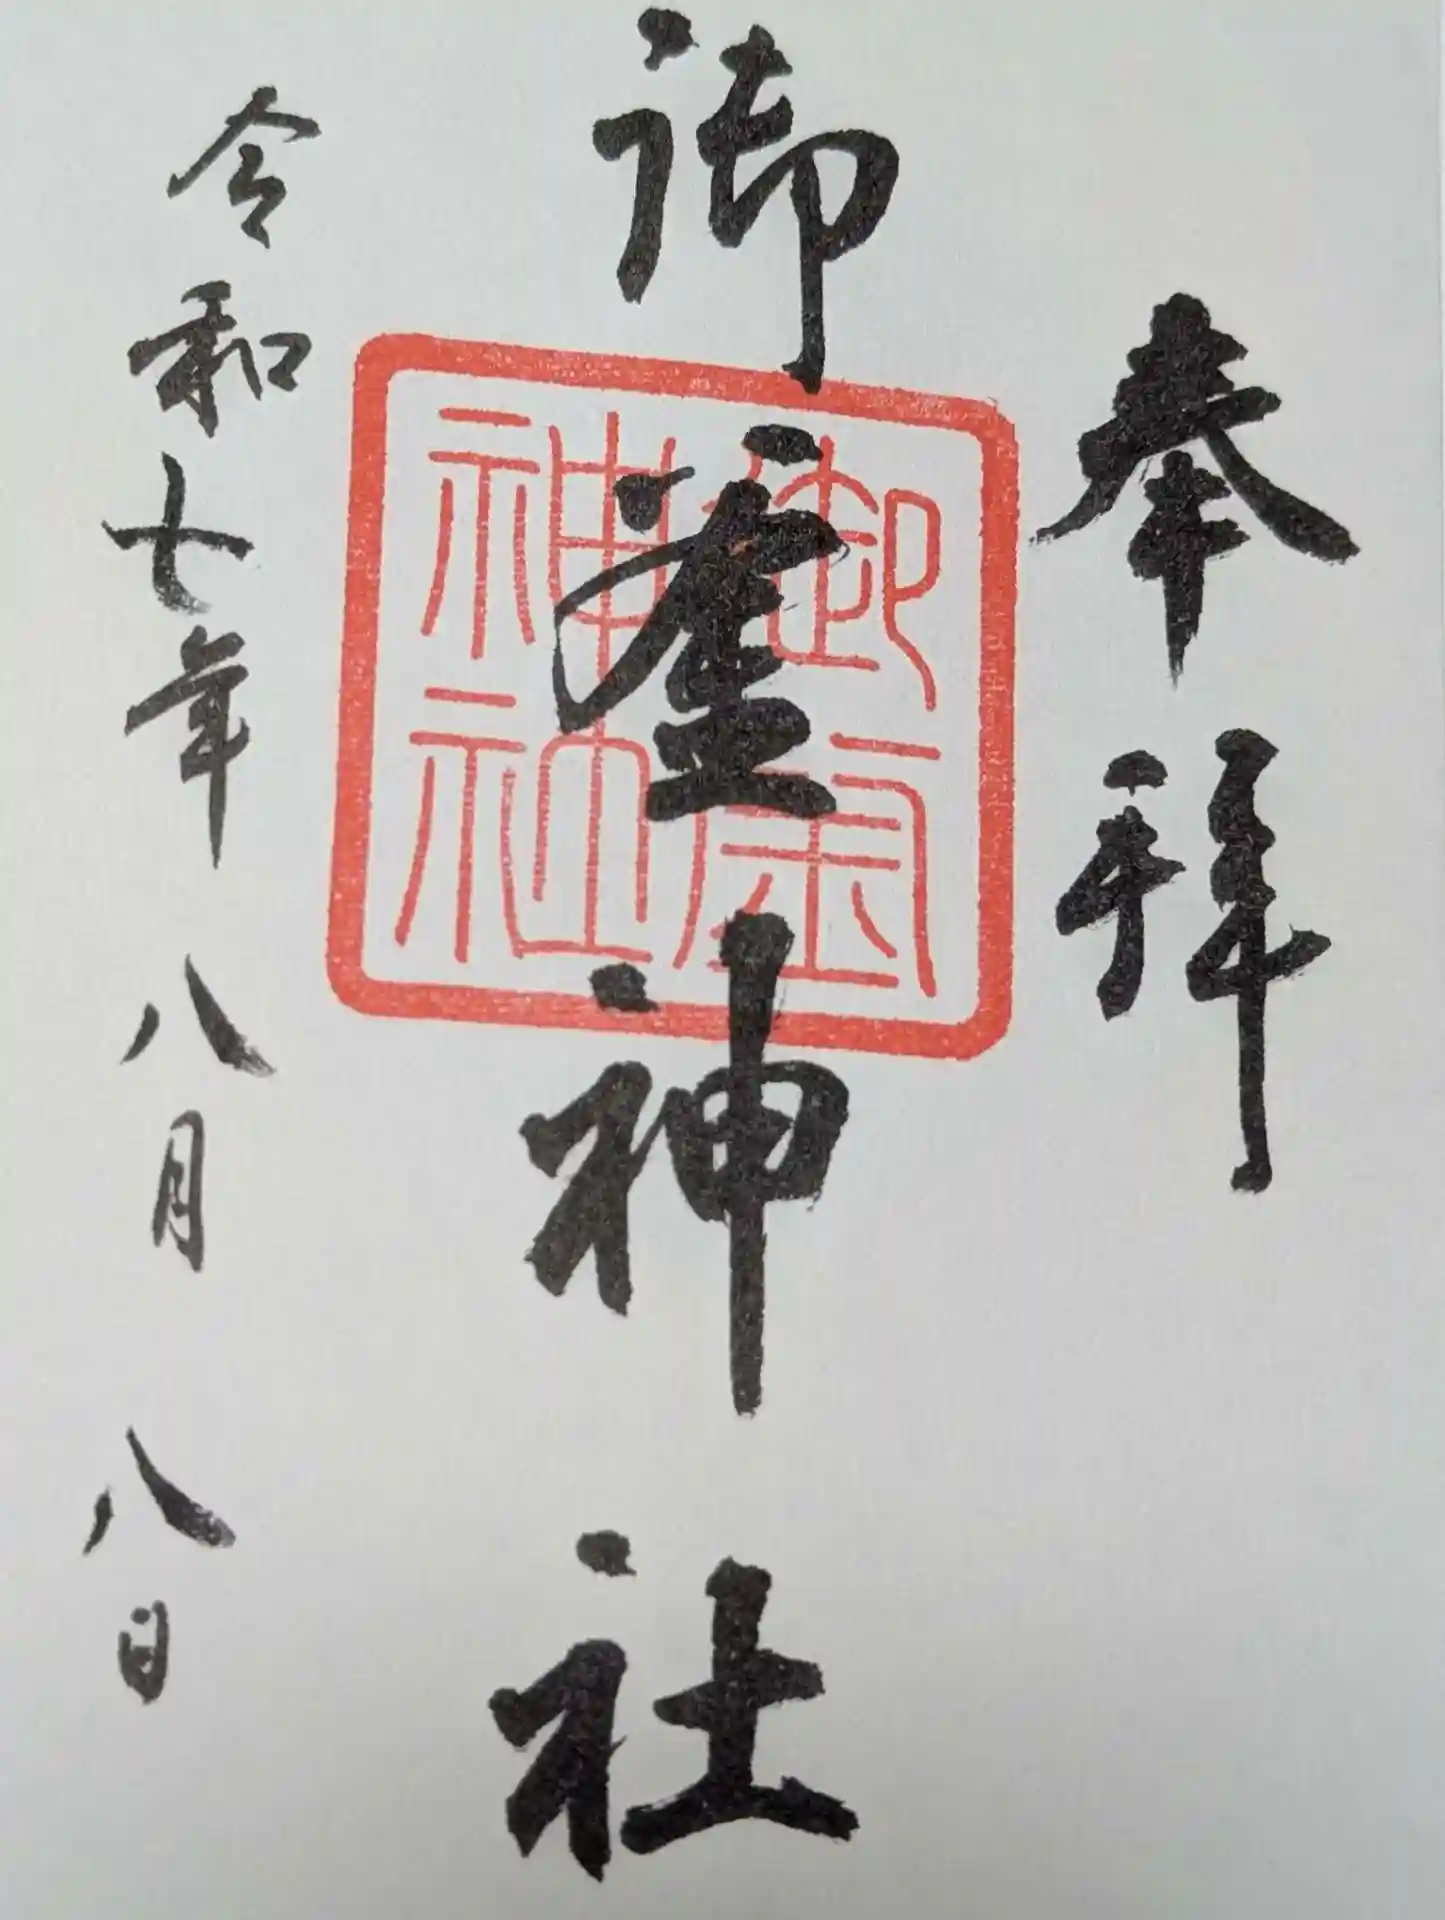 奉拝
御釜神社
御
神社
令和七年八月八日